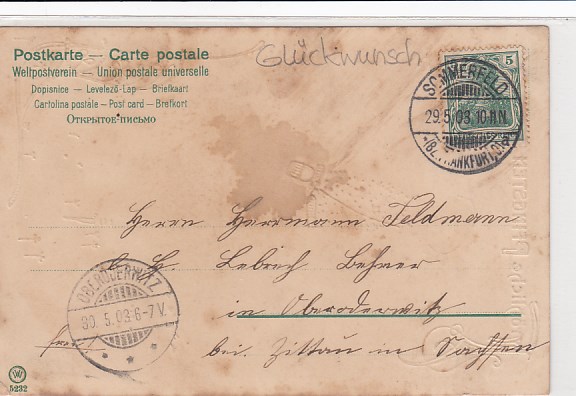 Postkarte — Carte postale
Weltpostverein — Union postale universelle
Dopisnice — Levelező-Lap — Briefkaart
Cartolina postale — Post card — Brefkort
Открытое-письмо
Glückwunsch
5
SOMMERFELD
29.5.03.10-11N.
(BZ. FRANKFURT, ODER)
Herrn Herrmann Feldmann
b. H. Lebrech Behner
in Oberoderwitz
bei Zittau in Sachsen
frei!
OBERODERWITZ
30.5.03.6-7V.
* * *
W
5232